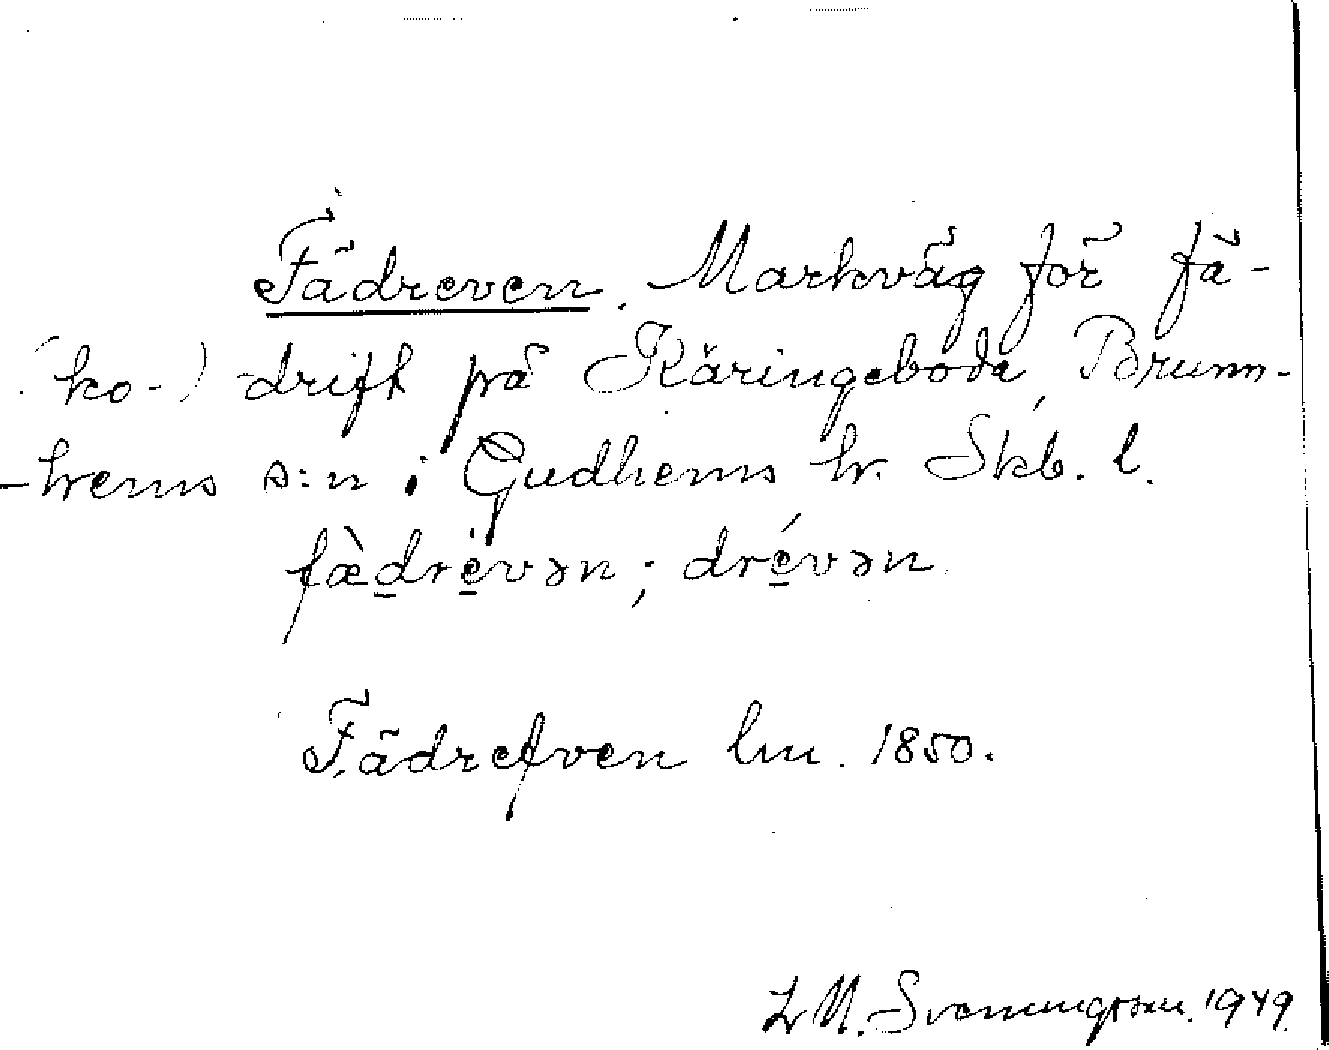 Fädreven. Markväg för fä-
(ko-) drift på Käringeboda, Brunn-
-hems s:n i Gudhems hr. Skb. l.
fæ̀dre̱vən; dré̱vən
Fädrefven lm. 1850.
L M. Svenungsson. 1949.